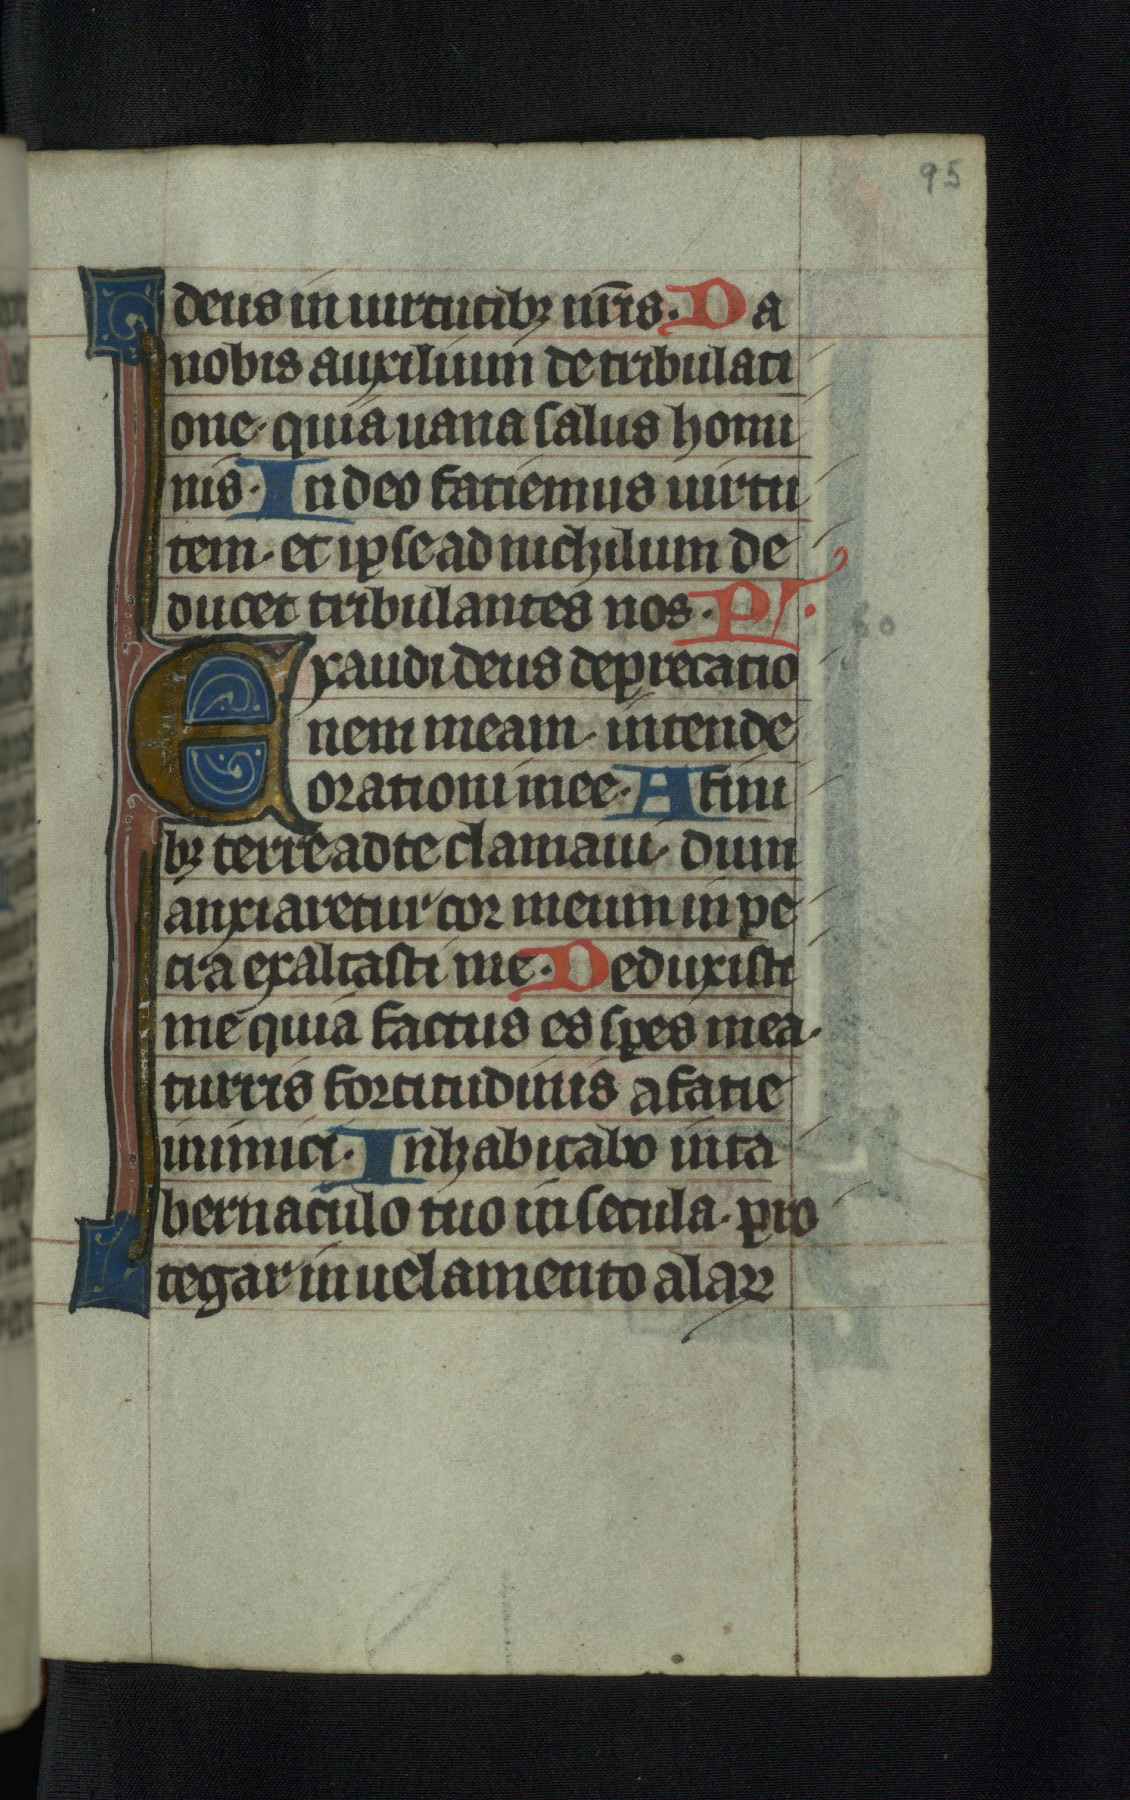 95
deus in uirtutibꝫ nr̄is. Da
nobis auxilium de tribulati
one. quia uana salus homi
nis. In deo faciemus uirtu
tem. et ipse ad nichilum de
ducet tribulantes nos. Ps.
60
Exaudi deus deprecatio
nem meam. intende
orationi mee. A fini
bꝫ terre ad te clamaui. dum
anxiaretur cor meum in pe
tra exaltasti me. Deduxisti
me quia factus es spes mea.
turris fortitudinis a facie
inimici. Inhabitabo in ta
bernaculo tuo in secula. pro
tegar in uelamento alaꝝ